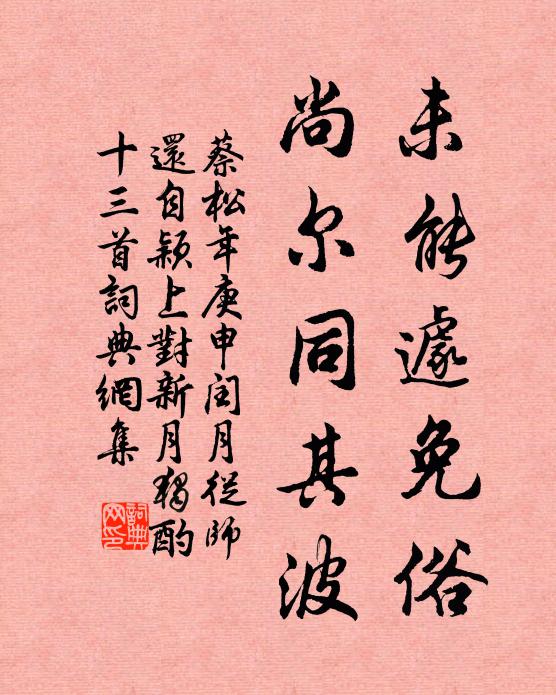 未能遽免俗
尚尔同其波
蔡松年庚申闰月從師
還自颍上對新月獨酌
十三首詞典網集
詞典
网印